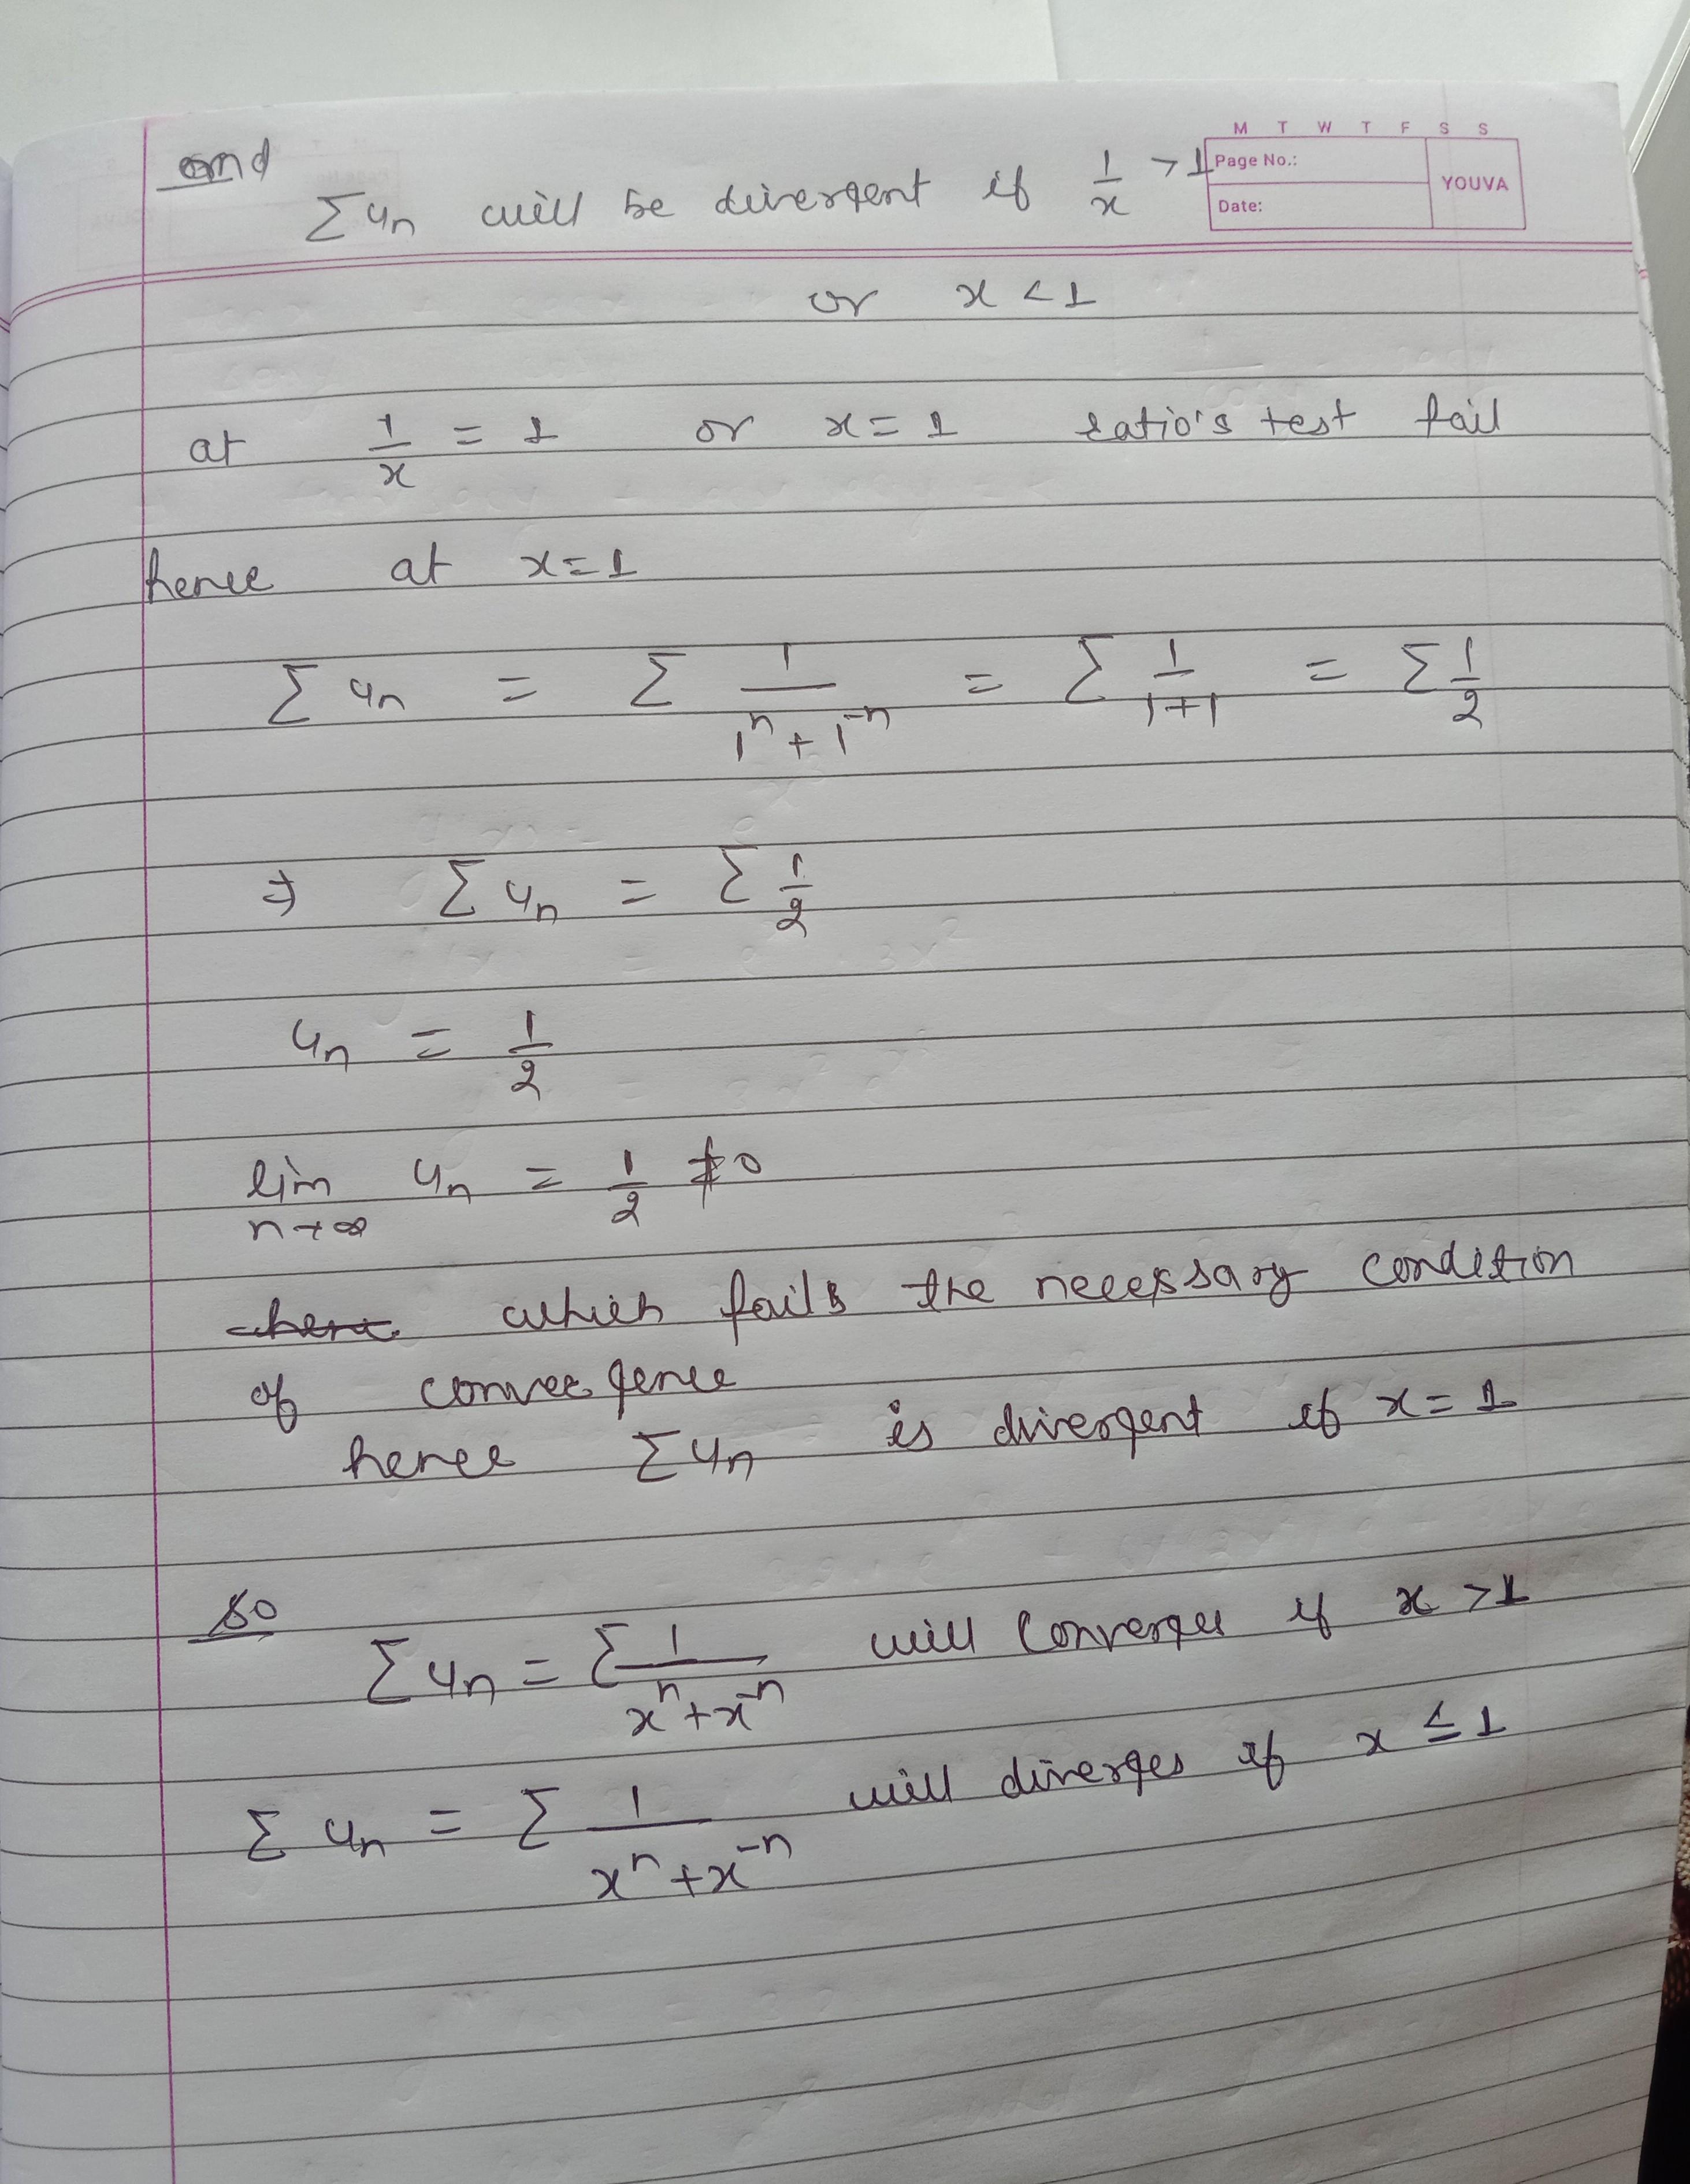 M T W T F S S
Page No.:
YOUVA
Date:
and
Σ un will be divergent if 1/x > 1
or x < 1
at 1/x = 1 or x = 1 ratio's test fail
hence at x = 1
Σ un = Σ 1/(1^n + 1^-n) = Σ 1/(1+1) = Σ 1/2
⇒ Σ un = Σ 1/2
un = 1/2
lim n→∞ un = 1/2 ≠ 0
which fails the necessary condition
of convergence
hence Σ un is divergent if x = 1
so
Σ un = Σ 1/(x^n + x^-n) will converges if x > 1
Σ un = Σ 1/(x^n + x^-n) will diverges if x ≤ 1